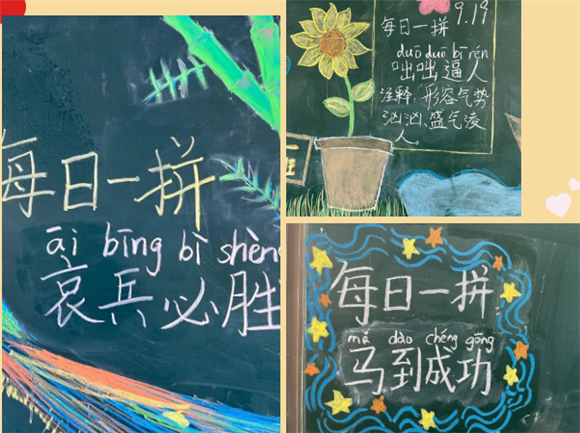 每日一拼
āi bīng bì shèng
哀兵必胜
每日一拼 9.19
duō duō bī rén
咄咄逼人
注释:形容气势
汹汹、盛气凌
人。
每日一拼
mǎ dào chéng gōng
马到成功